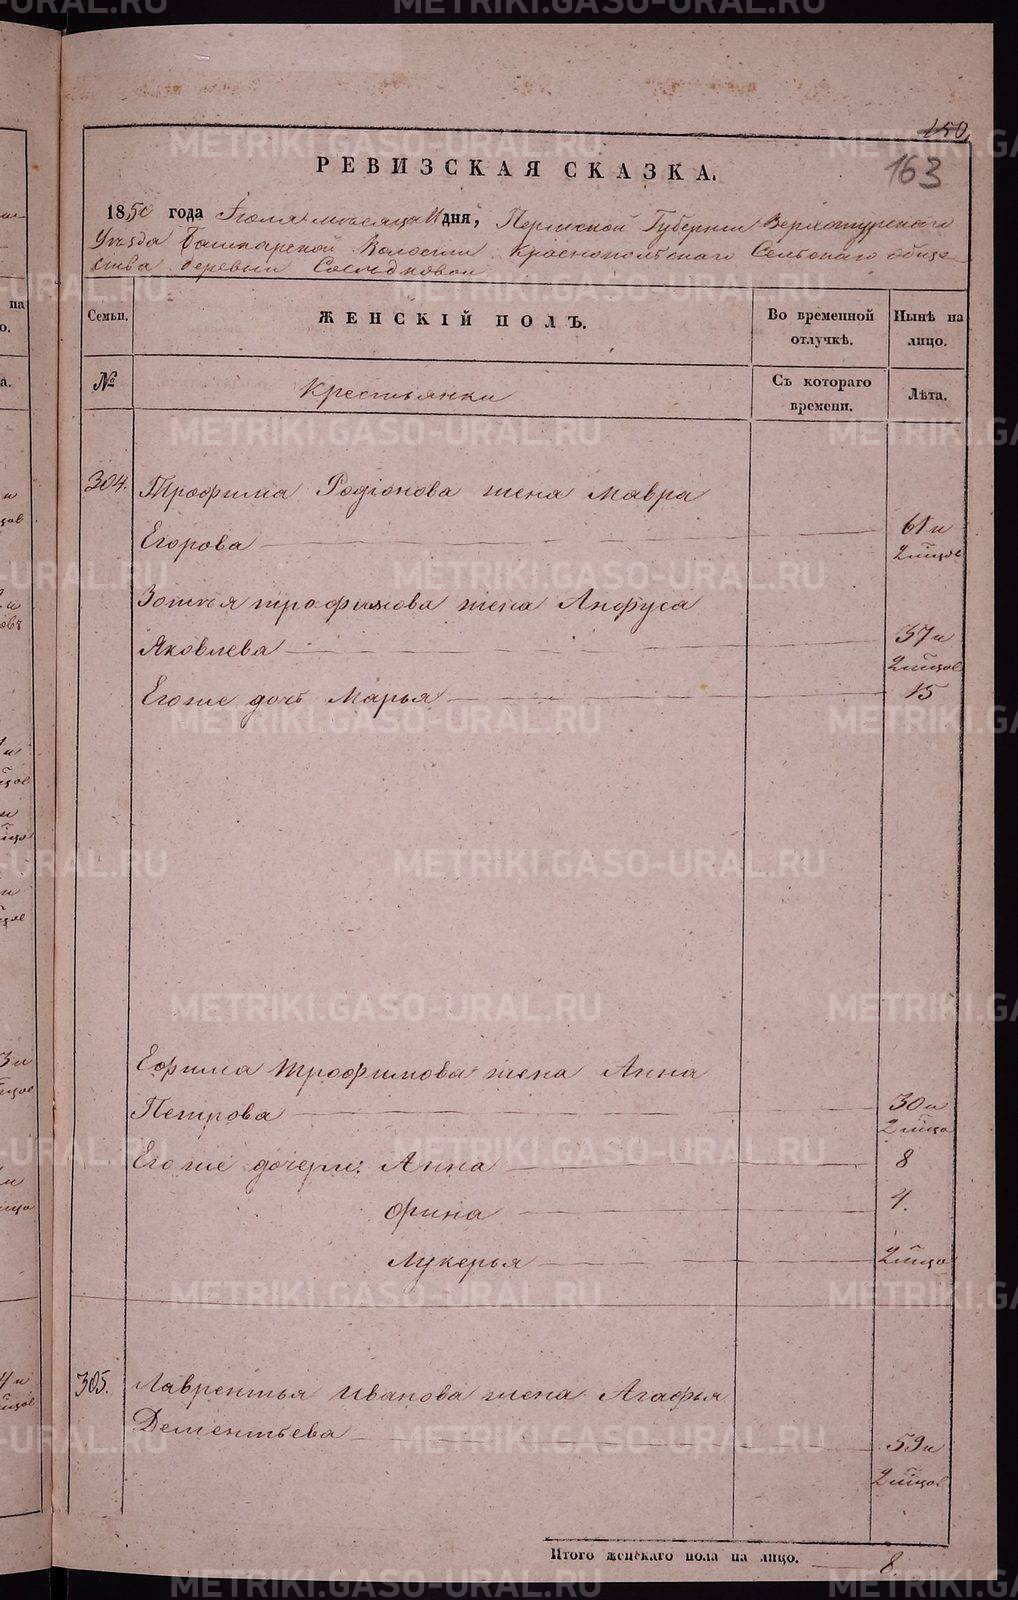 150.
163
РЕВИЗСКАЯ СКАЗКА.
1850 года Іюля месяца 11 дня, Пермской Губернии Верхотурскаго
Уезда Башкарской Волости Краснопольскаго Сельскаго обще-
ства деревни
Семьи. ЖЕНСКІЙ ПОЛЪ. Во временной отлучкѣ. Нынѣ на лицо.
№ Крестьянки Съ котораго времени. Лѣта.
304. Трофима Родіонова жена Мавра
Егорова 61 и
2 м̃цов
Зотея трофимова жена Анфуса
Яковлева 37 и
2 м̃цов
Его же дочь Марья 15
Ефима Трофимова жена Анна
Петрова 30 и
2 м̃цо
Его же дочери: Анна 8
Орина 4.
Лукерья 2 м̃цов
305. Лаврентья Иванова жена Агафья
Дементьева 59 и
2 м̃цов
Итого женскаго пола на лицо. 8.
METRIKI.GASO-URAL.RU